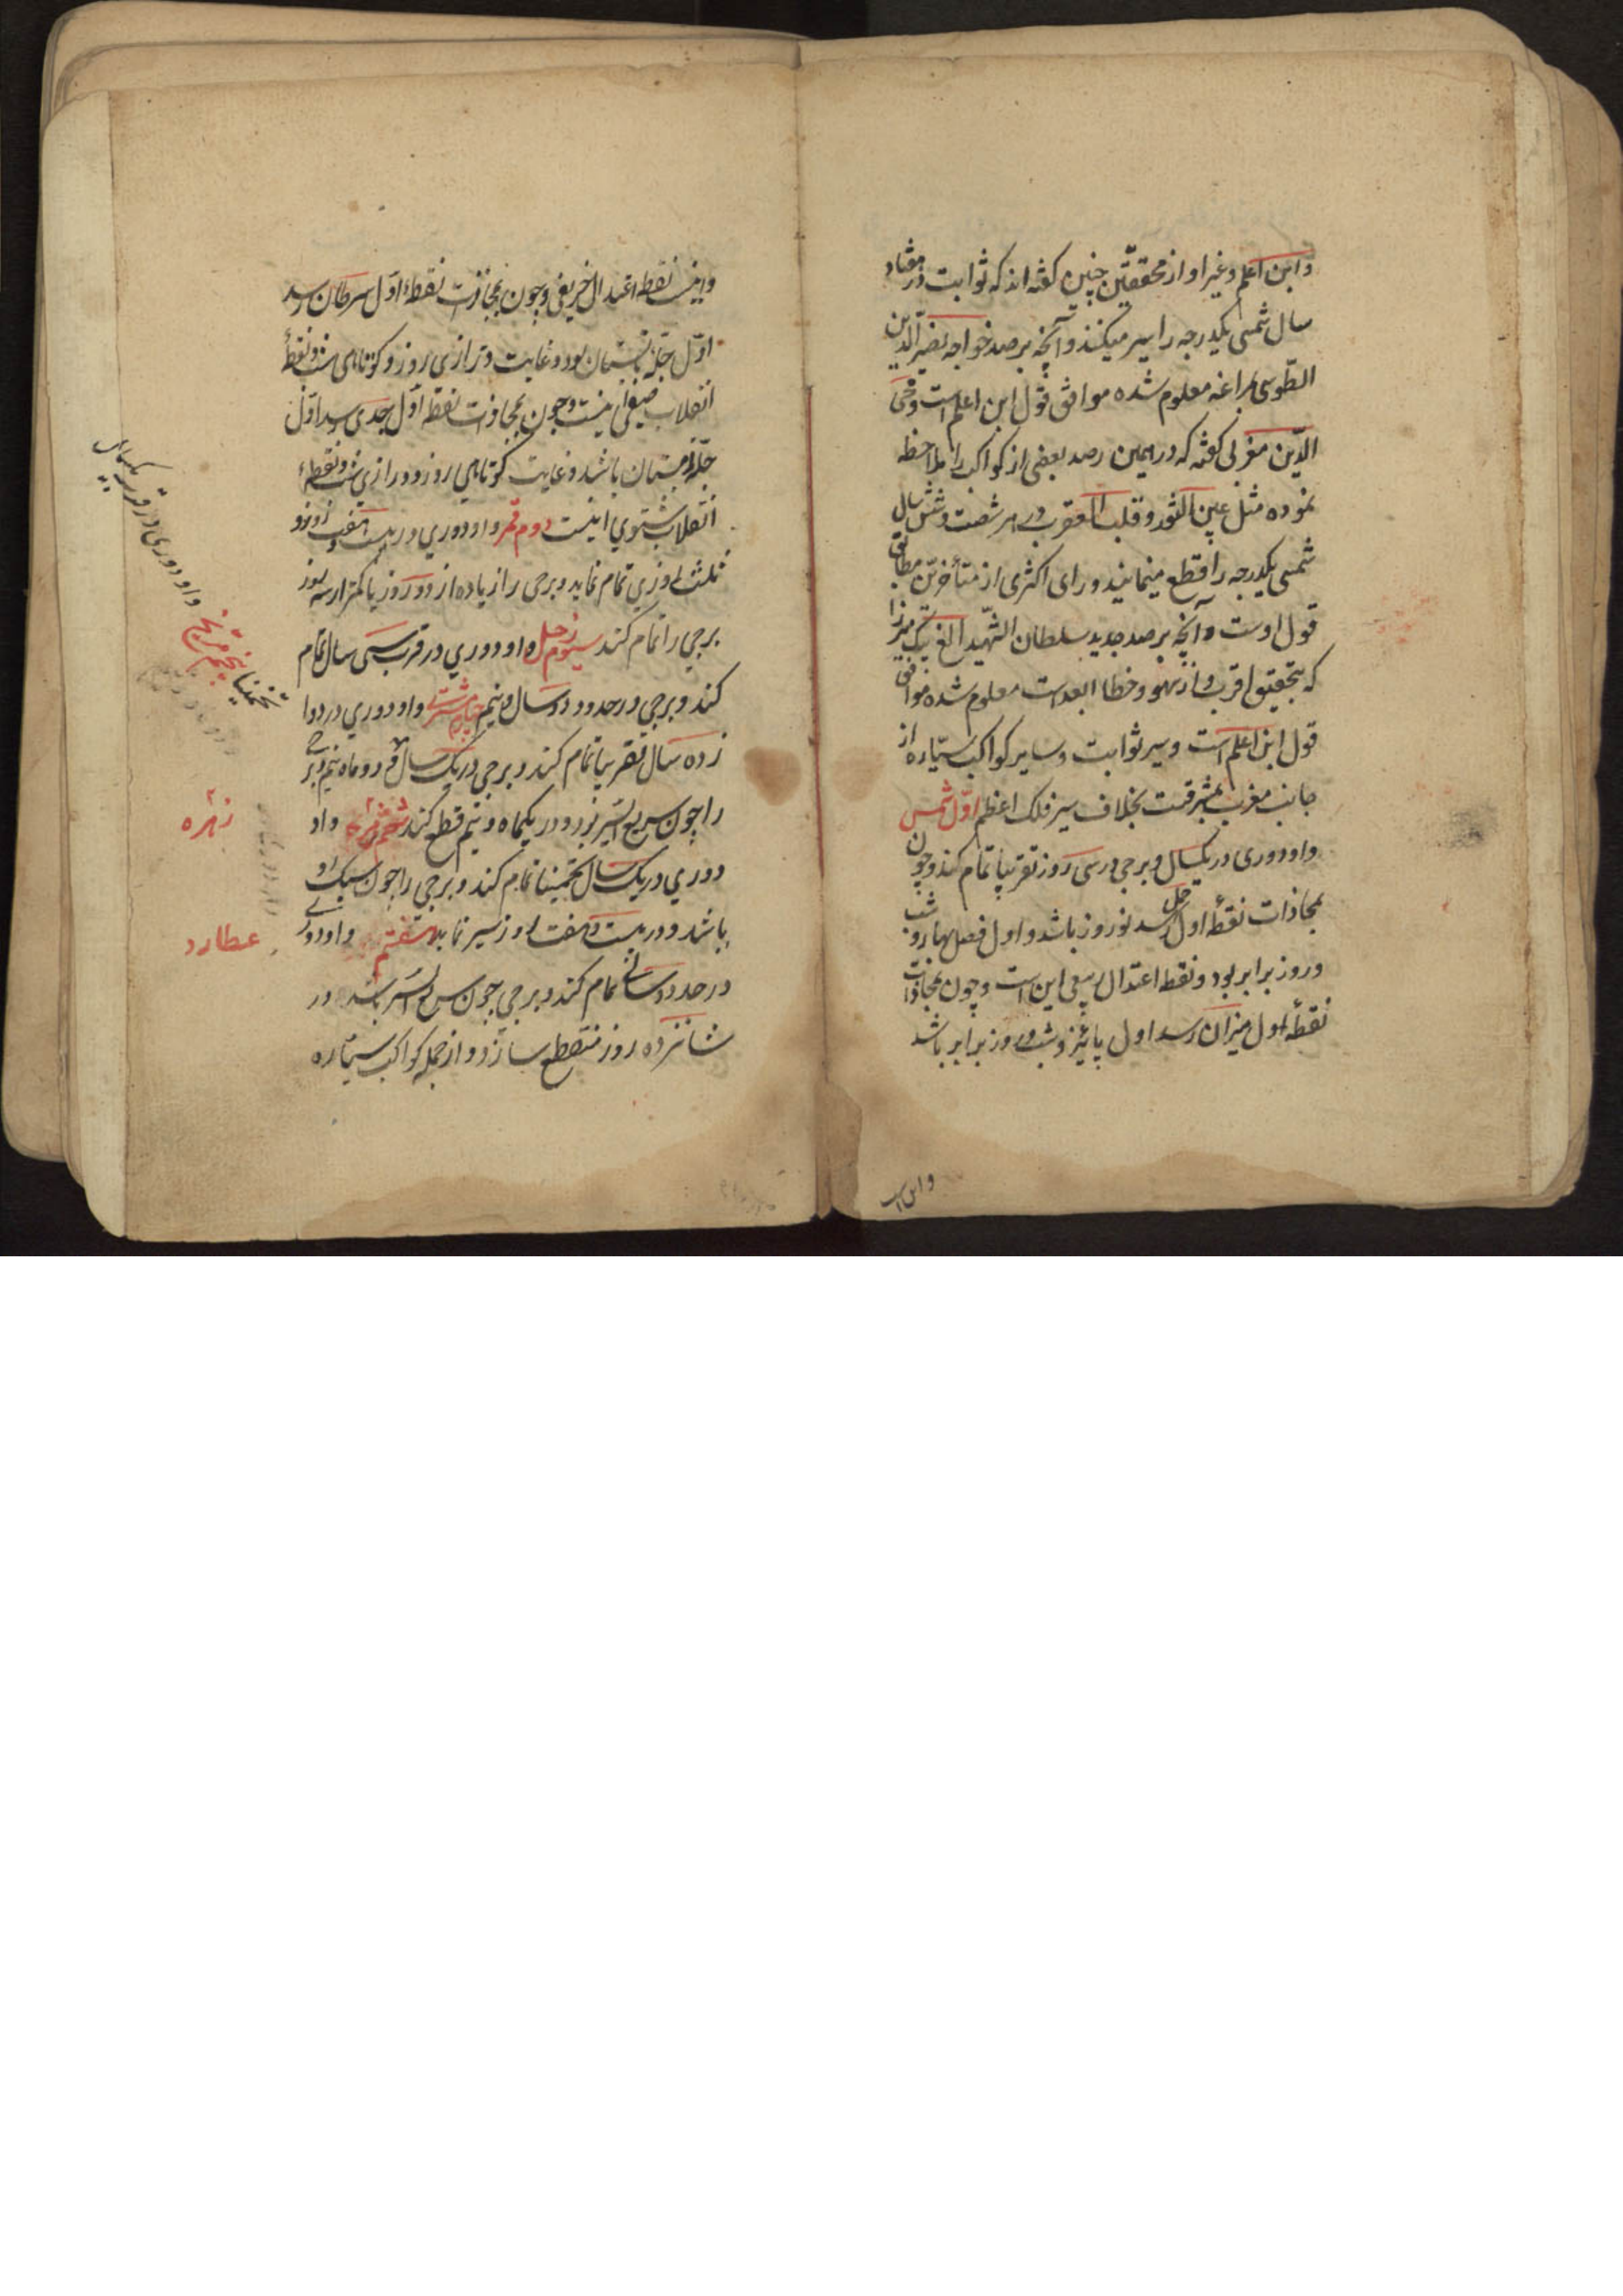 وابن اعلم و غیر او از محققین چنین گفته‌اند که ثوابت در هفتاد
سال شمسی یکدرجه را سیر میکنند و آنچه برصد خواجه نصیر الدین
الطوسی بمراغه معلوم شده موافق قول ابن اعلم است و محی
الدین مغربی گفته که در همین رصد بعضی از کواکب را ملاحظه
نموده مثل عین الثور و قلب العقرب در هر شصت و شش سال
شمسی یکدرجه را قطع مینمایند و رای اکثری از متأخرین مطابق
قول اوست و آنچه برصد جدید سلطان الشهید الغ بیک میرزا
که بتحقیق اقرب و از سهو و خطا ابعد است معلوم شده موافق
قول ابن اعلم است و سیر ثوابت و سایر کواکب سیّاره از
جانب مغرب بمشرقست بخلاف سیر فلک اعظم اوّل شمس
و او دوری در یکسال و برجی در سی روز تقریبا تمام کند و چون
بمحاذات نقطهٔ اول حمل رسد نوروز باشد و اول فصل بهار و شب
و روز برابر بود و نقطه اعتدال ربیعی این است و چون بمحاذات
نقطهٔ اول میزان رسد اول پائیز و شب و روز برابر باشد
و این
واینست نقطه اعتدال خریفی و چون بمحاذات نقطهٔ اوّل سرطان رسد
اوّل چلهٔ تابستان بود و غایت درازی روز و کوتاهی شب و نقطهٔ
انقلاب صیفی اینست و چون بمحاذات نقطه اوّل جدی رسد اوّل
چلهٔ زمستان باشد و غایت کوتاهی روز و درازی شب و نقطهٔ
انقلاب شتوی اینست دوم قمر و او دوری در بیست و هفت روز و
ثلث روزی تمام نماید و برجی را زیاده از دو روز یا کمتر از سه روز
برجی را تمام کند سیوم زحل و او دوری در قرب سی سال تمام
کند و برجی در حدود دو سال و نیم چهارم مشتری و او دوری در دوا
زده سال تقریبا تمام کند و برجی در یک سال و دو ماه نیم و برجی
را چون سریع السیر بود در یکماه و نیم قطع کند ششم زهره و او
دوری در یک سال تخمینا تمام کند و برجی را چون سبک رو
باشد در بیست و هفت روز سیر نماید هفتم و او دوری
در حدود سالی تمام کند و برجی چون سریع السیر باشد در
شانزده روز منقطع سازد و از جمله کواکب سیّاره
تخمینا پنجم مریخ و او دوری در قرب یکسال
زهره
عطارد